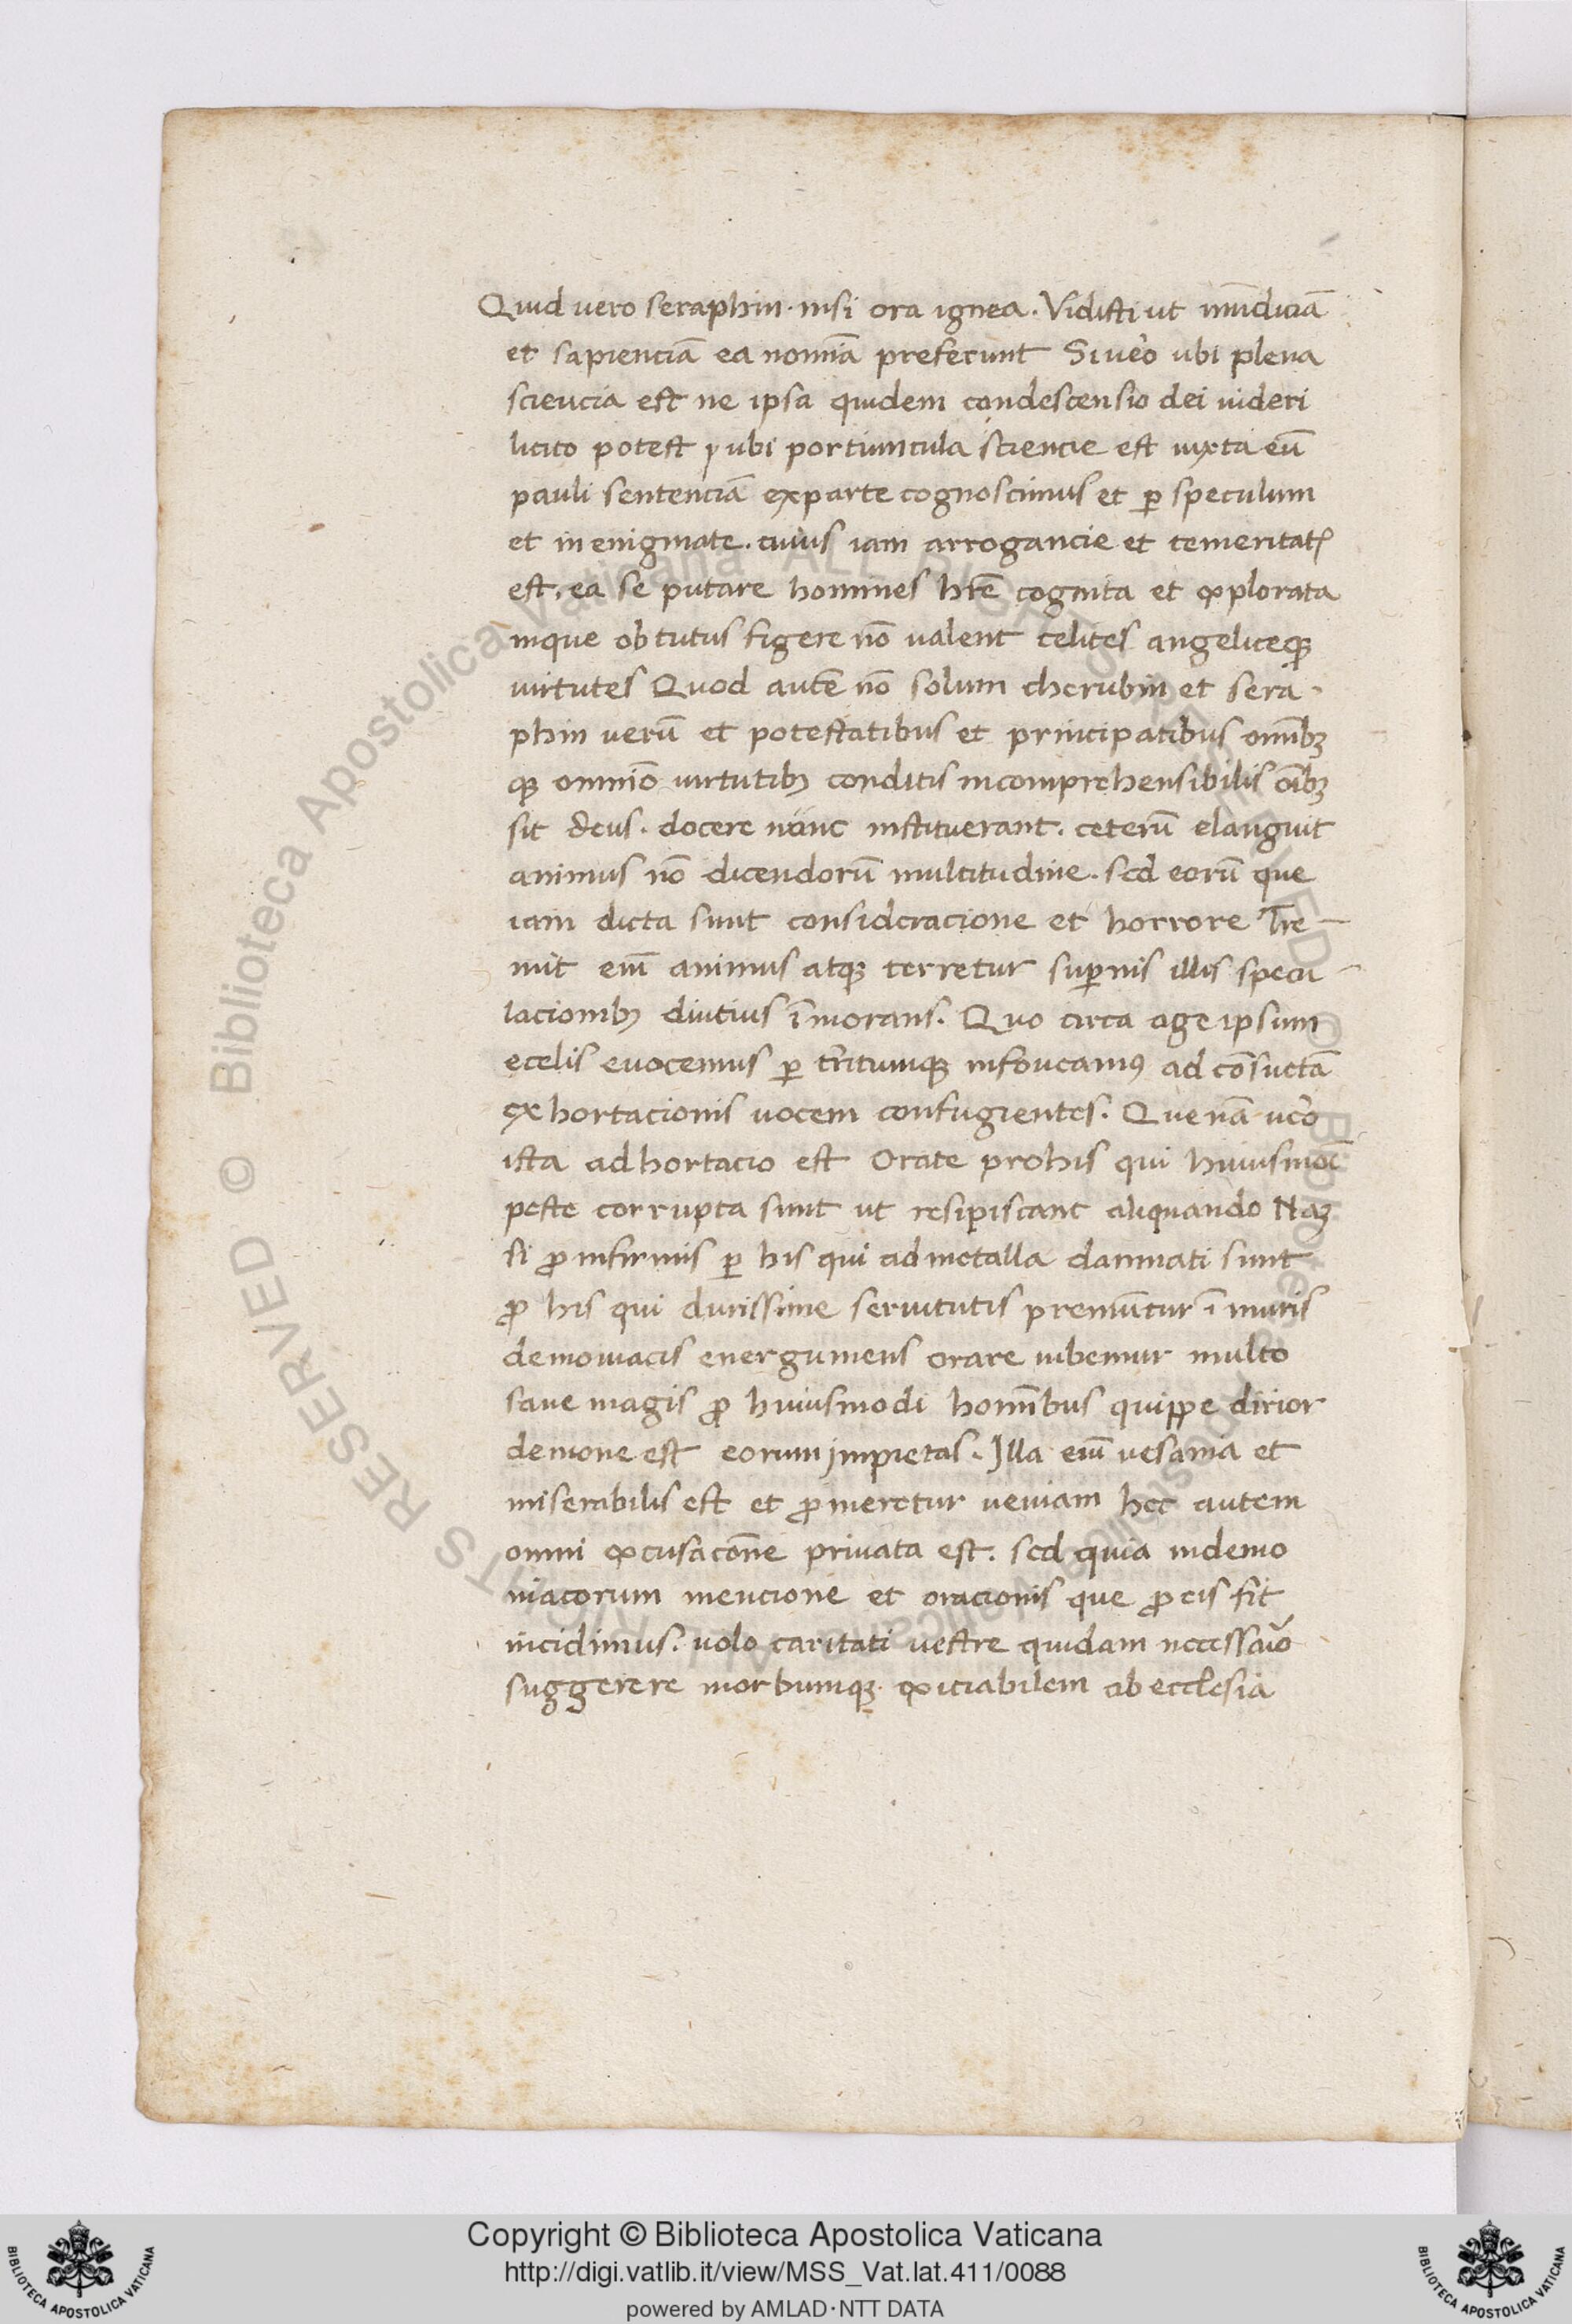 Quid uero seraphin · nisi ora ignea . Vidisti ut mūdiciā
et sapienciā ea nomīa preferunt Si ue͞o ubi plena
sciencia est ne ipsa quidem condescensio dei uideri
licito potest , ubi portiuncula sciencie est iuxta eū
pauli sentenciā ex parte cognoscimus et ꝑ speculum
et in enigmate . cuius iam arrogancie et temeritatꝭ
est . ea se putare homines hr̄e cognita et explorata
inque obtutus figere nō ualent celites angeliceqꝫ
uirtutes Quod autē nō solum cherubin et sera -
phin uerū et potestatibus et principatibus omībꝫ
qꝫ omnīo uirtutibꝫ conditis incomprehensibilis oībꝫ
sit deus . docere nunc instituerant . ceterū elanguit
animus nō dicendorū multitudine . sed eorū que
iam dicta sunt consideracione et horrore Tre -
mit eīm animus atqꝫ terretur suꝑnis illis specu -
lacionibꝫ diutius īmorans . Quo circa age ipsum
e celis euocemus ꝑ territumqꝫ ad cōsuetā
exhortacionis uocem confugientes . Que nā ue͞o
ista adhortacio est Orate pro his qui huiusmōi
peste corrupta sunt ut resipiscant aliquando Naꝫ
si ꝓ infirmis ꝑ his qui ad metalla damnati sunt
ꝓ his qui durissime seruitutis premūtur ī
demoniacis energumens orare iubemur multo
sane magis ꝓ huiusmodi homībus quippe dirior
demone est eorum impietas . Illa eīm uesania et
miserabilis est et ꝓmeretur ueniam hec autem
omni excusacōne priuata est . sed quia in demo
niacorum mencione et oracionis que ꝓ eis fit
incidimus . uolo caritati uestre quidam necessar̄io
suggerere morbumqꝫ ab ecclesia
Copyright © Biblioteca Apostolica Vaticana
http://digi.vatlib.it/view/MSS_Vat.lat.411/0088
powered by AMLAD·NTT DATA
BIBLIOTECA APOSTOLICA VATICANA
BIBLIOTECA APOSTOLICA VATICANA
Biblioteca Apostolica Vaticana ALL RIGHTS RESERVED ©